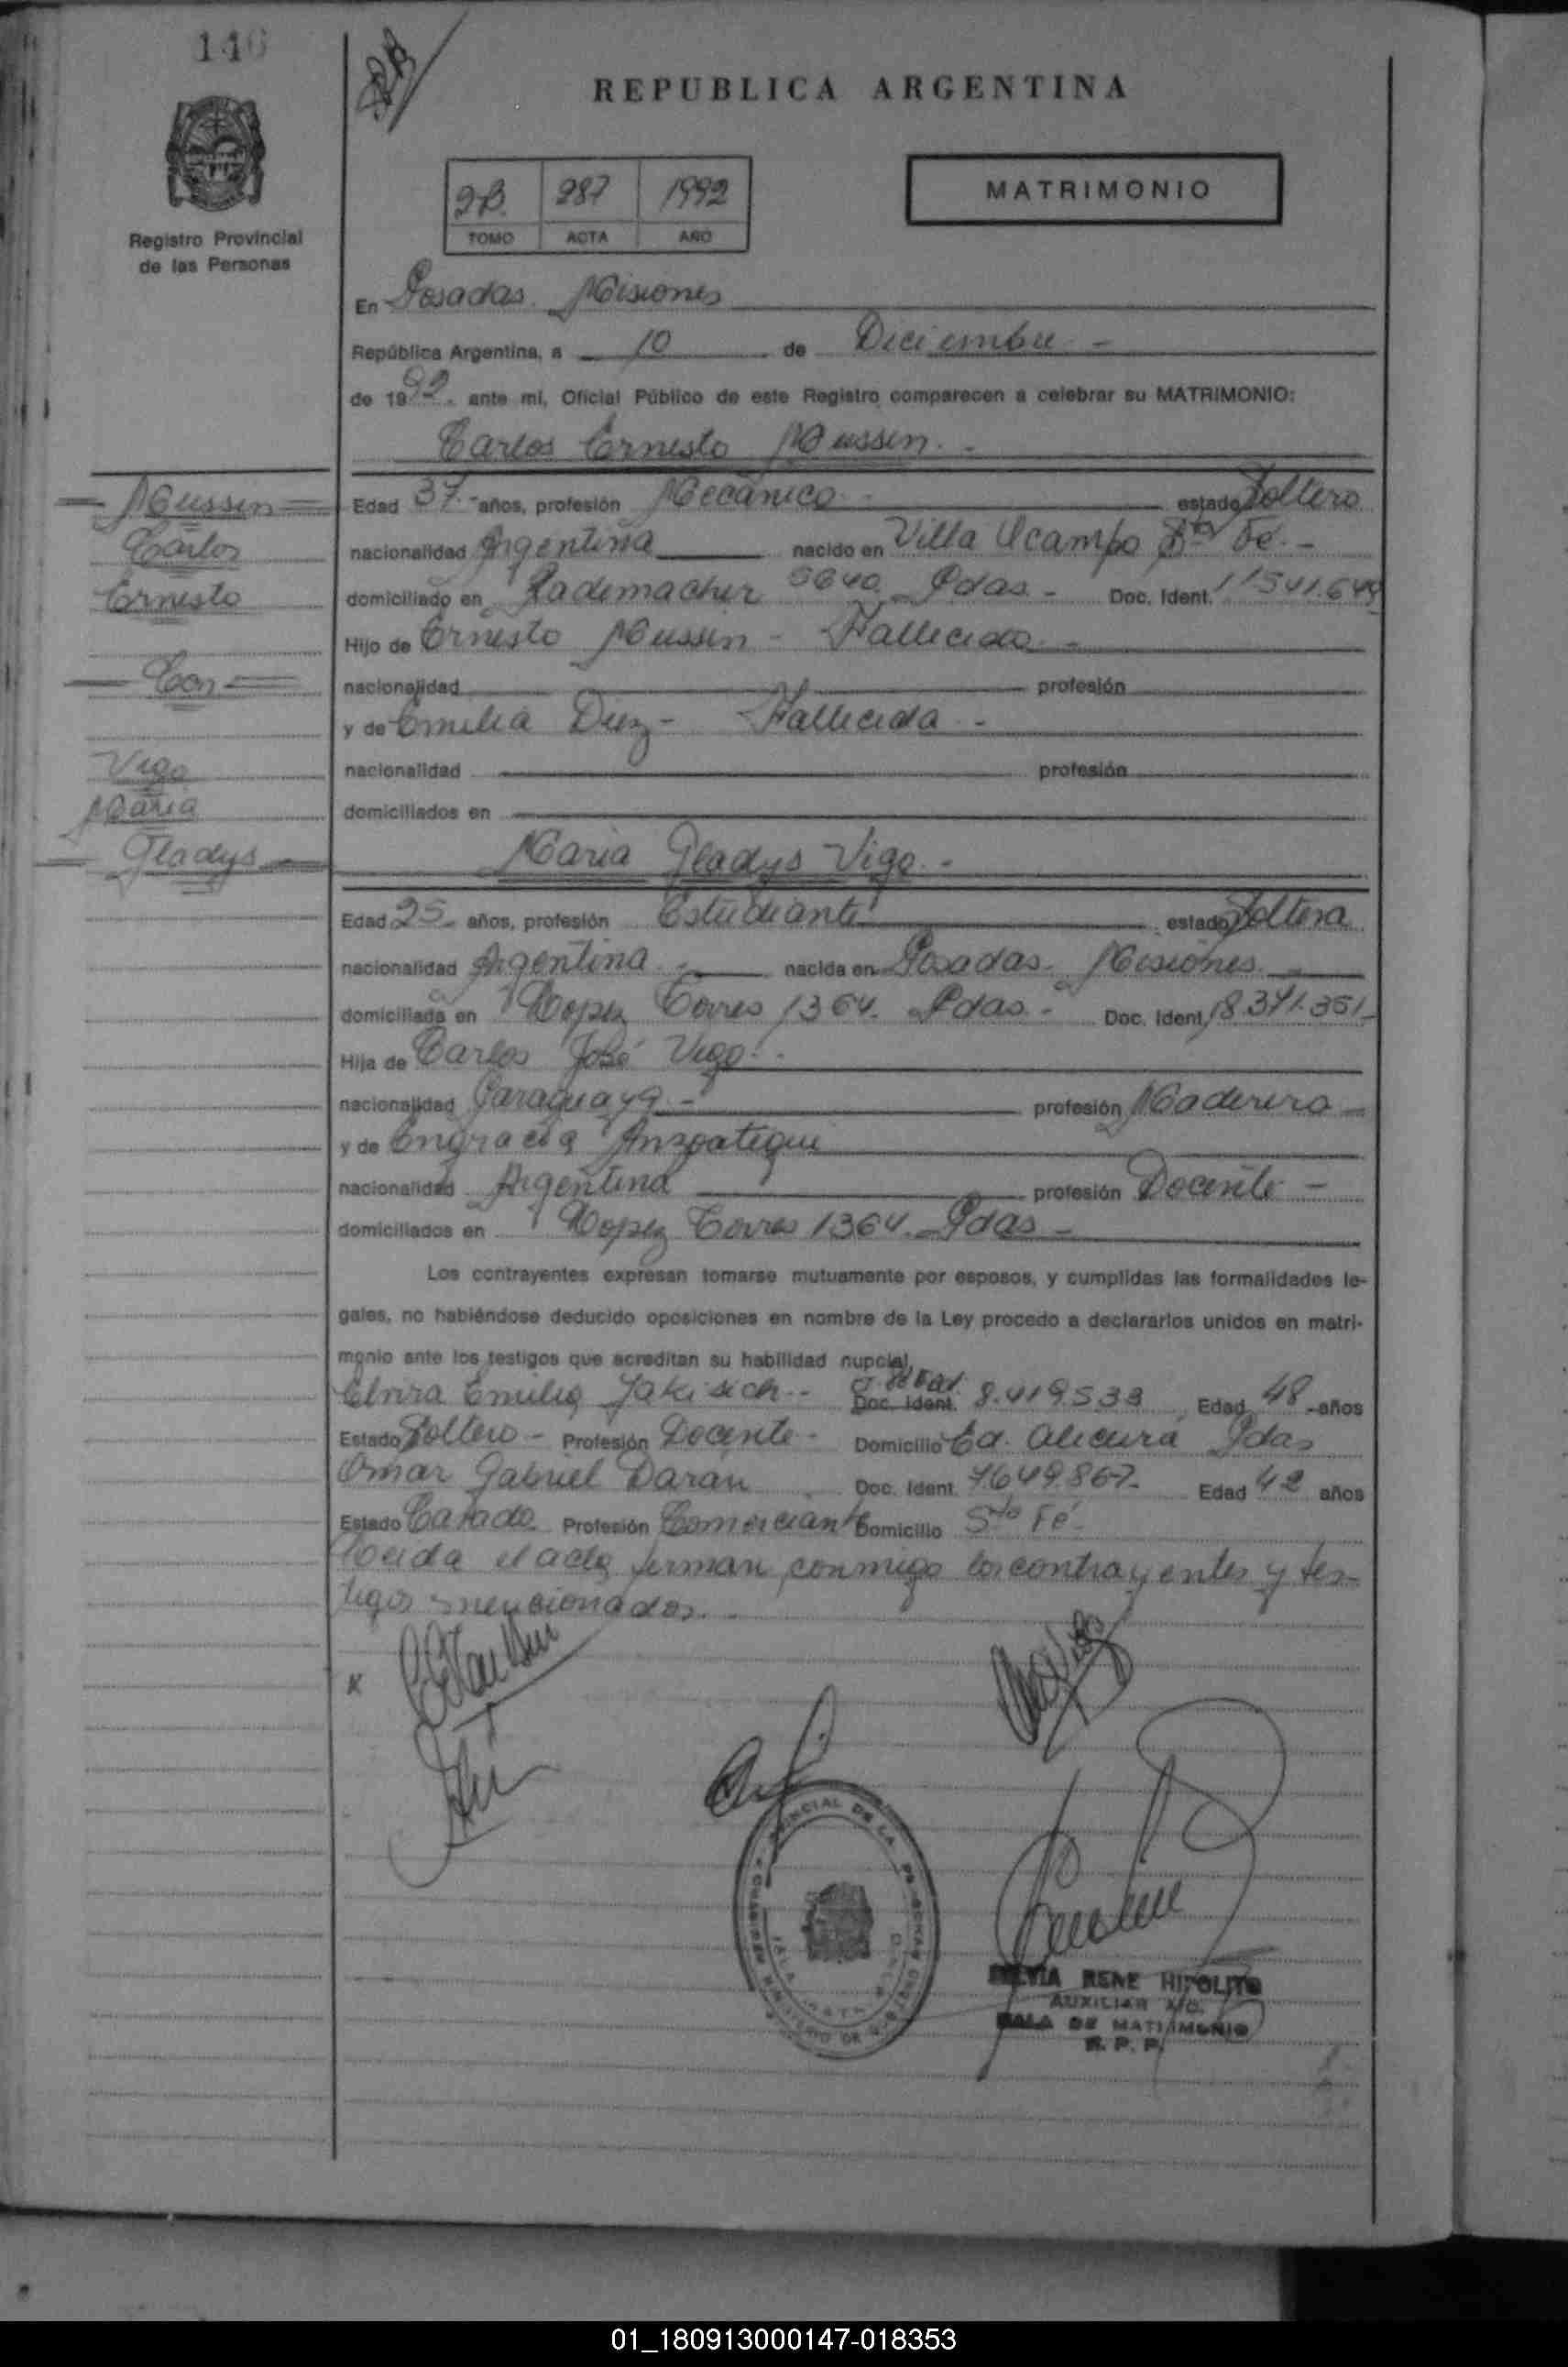 140
REPUBLICA ARGENTINA
2B. 287 1992
TOMO ACTA AÑO
MATRIMONIO
Registro Provincial
de las Personas
En Posadas. Misiones
República Argentina, a 10 de Diciembre -
de 1992. ante mi, Oficial Público de este Registro comparecen a celebrar su MATRIMONIO:
Carlos Ernesto Mussin. -
Mussin
Carlos
Ernesto
Con
Vigo
Maria
Gladys
Edad 37.- años, profesión Mecánico. - estado Soltero
nacionalidad Argentina nacido en Villa Ocampo Sta Fé. -
domiciliado en Rademacher 5640. Pdas. - Doc. Ident. 11541.649
Hijo de Ernesto Mussin - Fallecido. -
nacionalidad profesión
y de Emilia Diez - Fallecida -
nacionalidad profesión
domiciliados en
Maria Gladys Vigo. -
Edad 25- años, profesión Estudiante estado Soltera
nacionalidad Argentina. - nacida en Posadas. Misiones.
domiciliada en Lopez Torres 1364. Pdas. - Doc. Ident. 18.371.351-
Hija de Carlos José Vigo. -
nacionalidad Paraguaya. - profesión Maderero -
y de Engracia Anzoategui
nacionalidad Argentina profesión Docente -
domiciliados en Lopez Torres 1364. Pdas -
Los contrayentes expresan tomarse mutuamente por esposos, y cumplidas las formalidades le-
gales, no habiéndose deducido oposiciones en nombre de la Ley procedo a declararlos unidos en matri-
monio ante los testigos que acreditan su habilidad nupcial.
Elvira Emilia Jakisich. - Doc. Ident. 8.419533 Edad 48 años
Estado Soltero - Profesión Docente - Domicilio Ed. Alicura Pdas
Omar Gabriel Darán Doc. Ident. 7.649.867- Edad 42 años
Estado Casado Profesión Comerciante Domicilio Sta Fé -
Leida el acta firman conmigo los contrayentes y tes-
tigos mencionados. -
SILVIA RENE HIPOLITO
AUXILIAR A/C.
SALA DE MATRIMONIO
R. P. P.
01_180913000147-018353